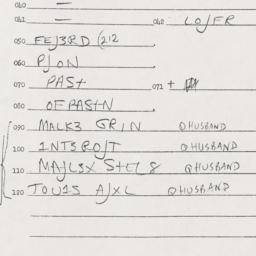 040 —
041 — 042 LOJFR
050 FEJ3RD (212
060 PJON
070 PAST 071 +
080 OFPASTN
090 MALK3 GRIN @HUSBAND
100 1NT3ROJT @HUSBAND
110 MAJL3X STEL8 @HUSBAND
120 TOU1S AJXL @HUSBAND